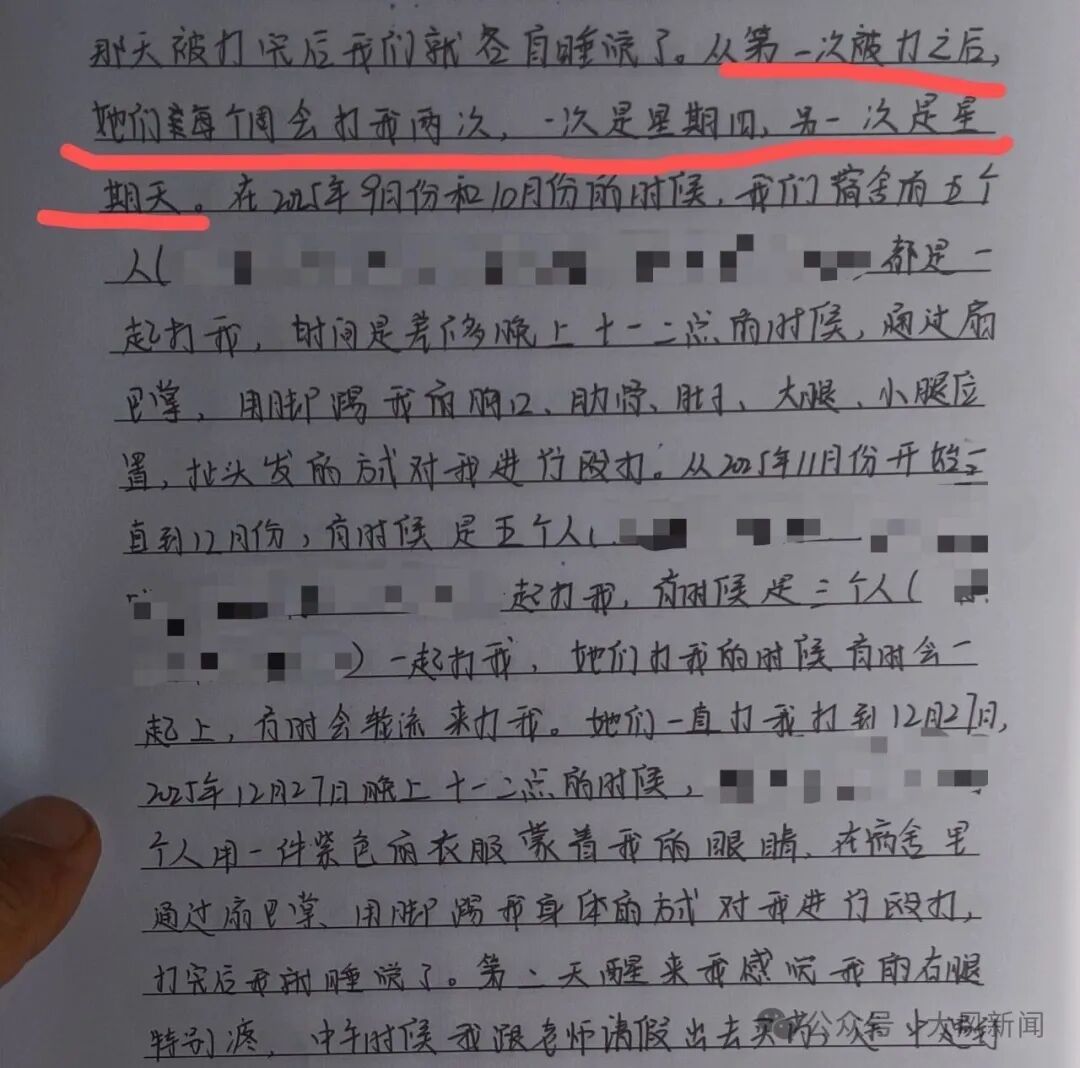 那天被打完后我们就各自睡觉了。从第一次被打之后,
她们每个周会打我两次,一次是星期四,另一次是星
期天。在2025年9月份和10月份的时候,我们宿舍有五个
人( 都是一
起打我,时间是差不多晚上十一二点的时候,通过扇
巴掌、用脚踢我的胸口、肋骨、肚子、大腿、小腿位
置,扯头发的方式对我进行殴打。从2025年11月份开始一
直到12月份,有时候是五个人(
起打我,有时候是三个人(
)一起打我,她们打我的时候有时会一
起上,有时会轮流来打我。她们一直打我打到12月27日,
2025年12月27日晚上十一二点的时候,
个人用一件紫色的衣服蒙着我的眼睛,在宿舍里
通过扇巴掌、用脚踢我身体的方式对我进行殴打,
打完后我就睡觉了。第二天醒来我感觉我的右腿
特别疼,中午时候我跟老师请假出去买药,
公众号·大
新闻